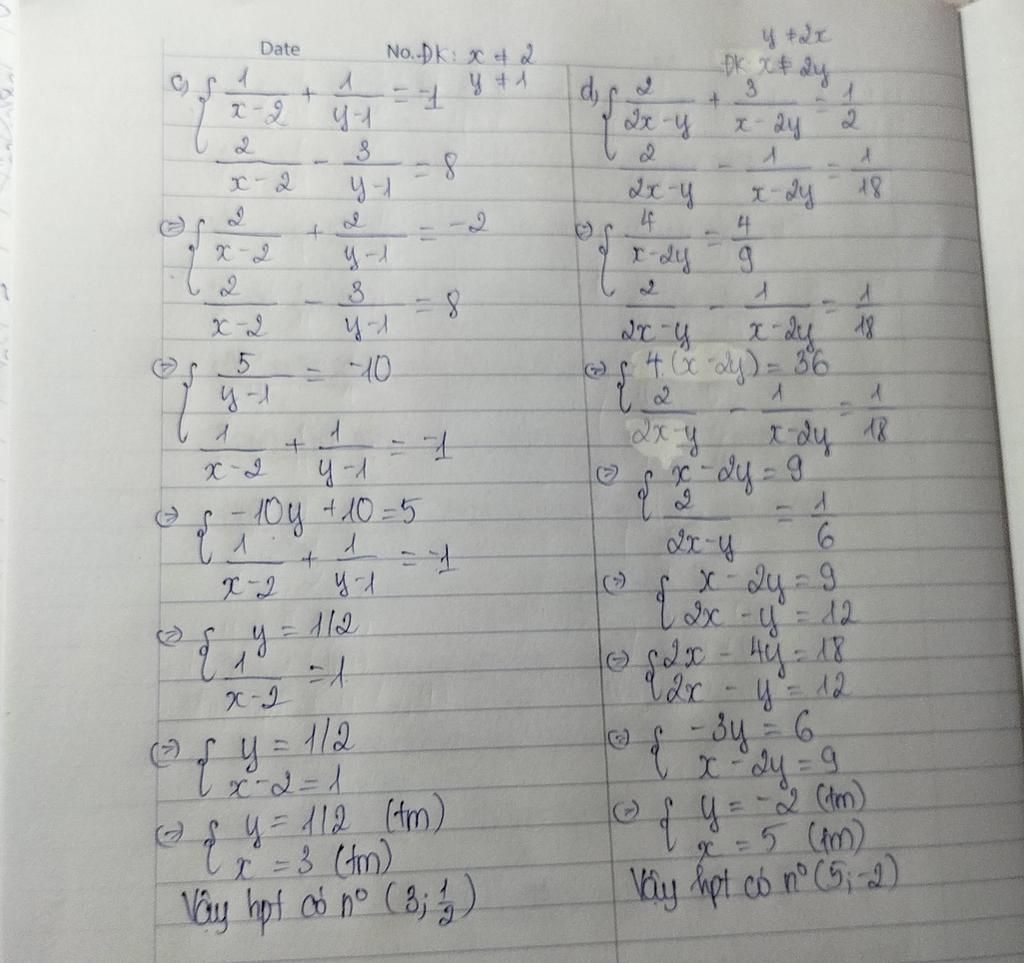 Date No. ĐK: x ≠ 2
y ≠ 1
c) { 1/(x-2) + 1/(y-1) = -1
2/(x-2) - 3/(y-1) = 8
(=) { 2/(x-2) + 2/(y-1) = -2
2/(x-2) - 3/(y-1) = 8
(=) { 5/(y-1) = -10
1/(x-2) + 1/(y-1) = -1
(=) { -10y + 10 = 5
1/(x-2) + 1/(y-1) = -1
(=) { y = 1/2
1/(x-2) = 1
(=) { y = 1/2
x - 2 = 1
(=) { y = 1/2 (tm)
x = 3 (tm)
Vậy hpt có nº (3; 1/2)
y ≠ 2x
ĐK: x ≠ 2y
d) { 2/(2x-y) + 3/(x-2y) = 1/2
2/(2x-y) - 1/(x-2y) = 1/18
(=) { 4/(x-2y) = 4/9
2/(2x-y) - 1/(x-2y) = 1/18
(=) { 4.(x-2y) = 36
2/(2x-y) - 1/(x-2y) = 1/18
(=) { x - 2y = 9
2/(2x-y) = 1/6
(=) { x - 2y = 9
2x - y = 12
(=) { 2x - 4y = 18
2x - y = 12
(=) { -3y = 6
x - 2y = 9
(=) { y = -2 (tm)
x = 5 (tm)
Vậy hpt có nº (5; -2)